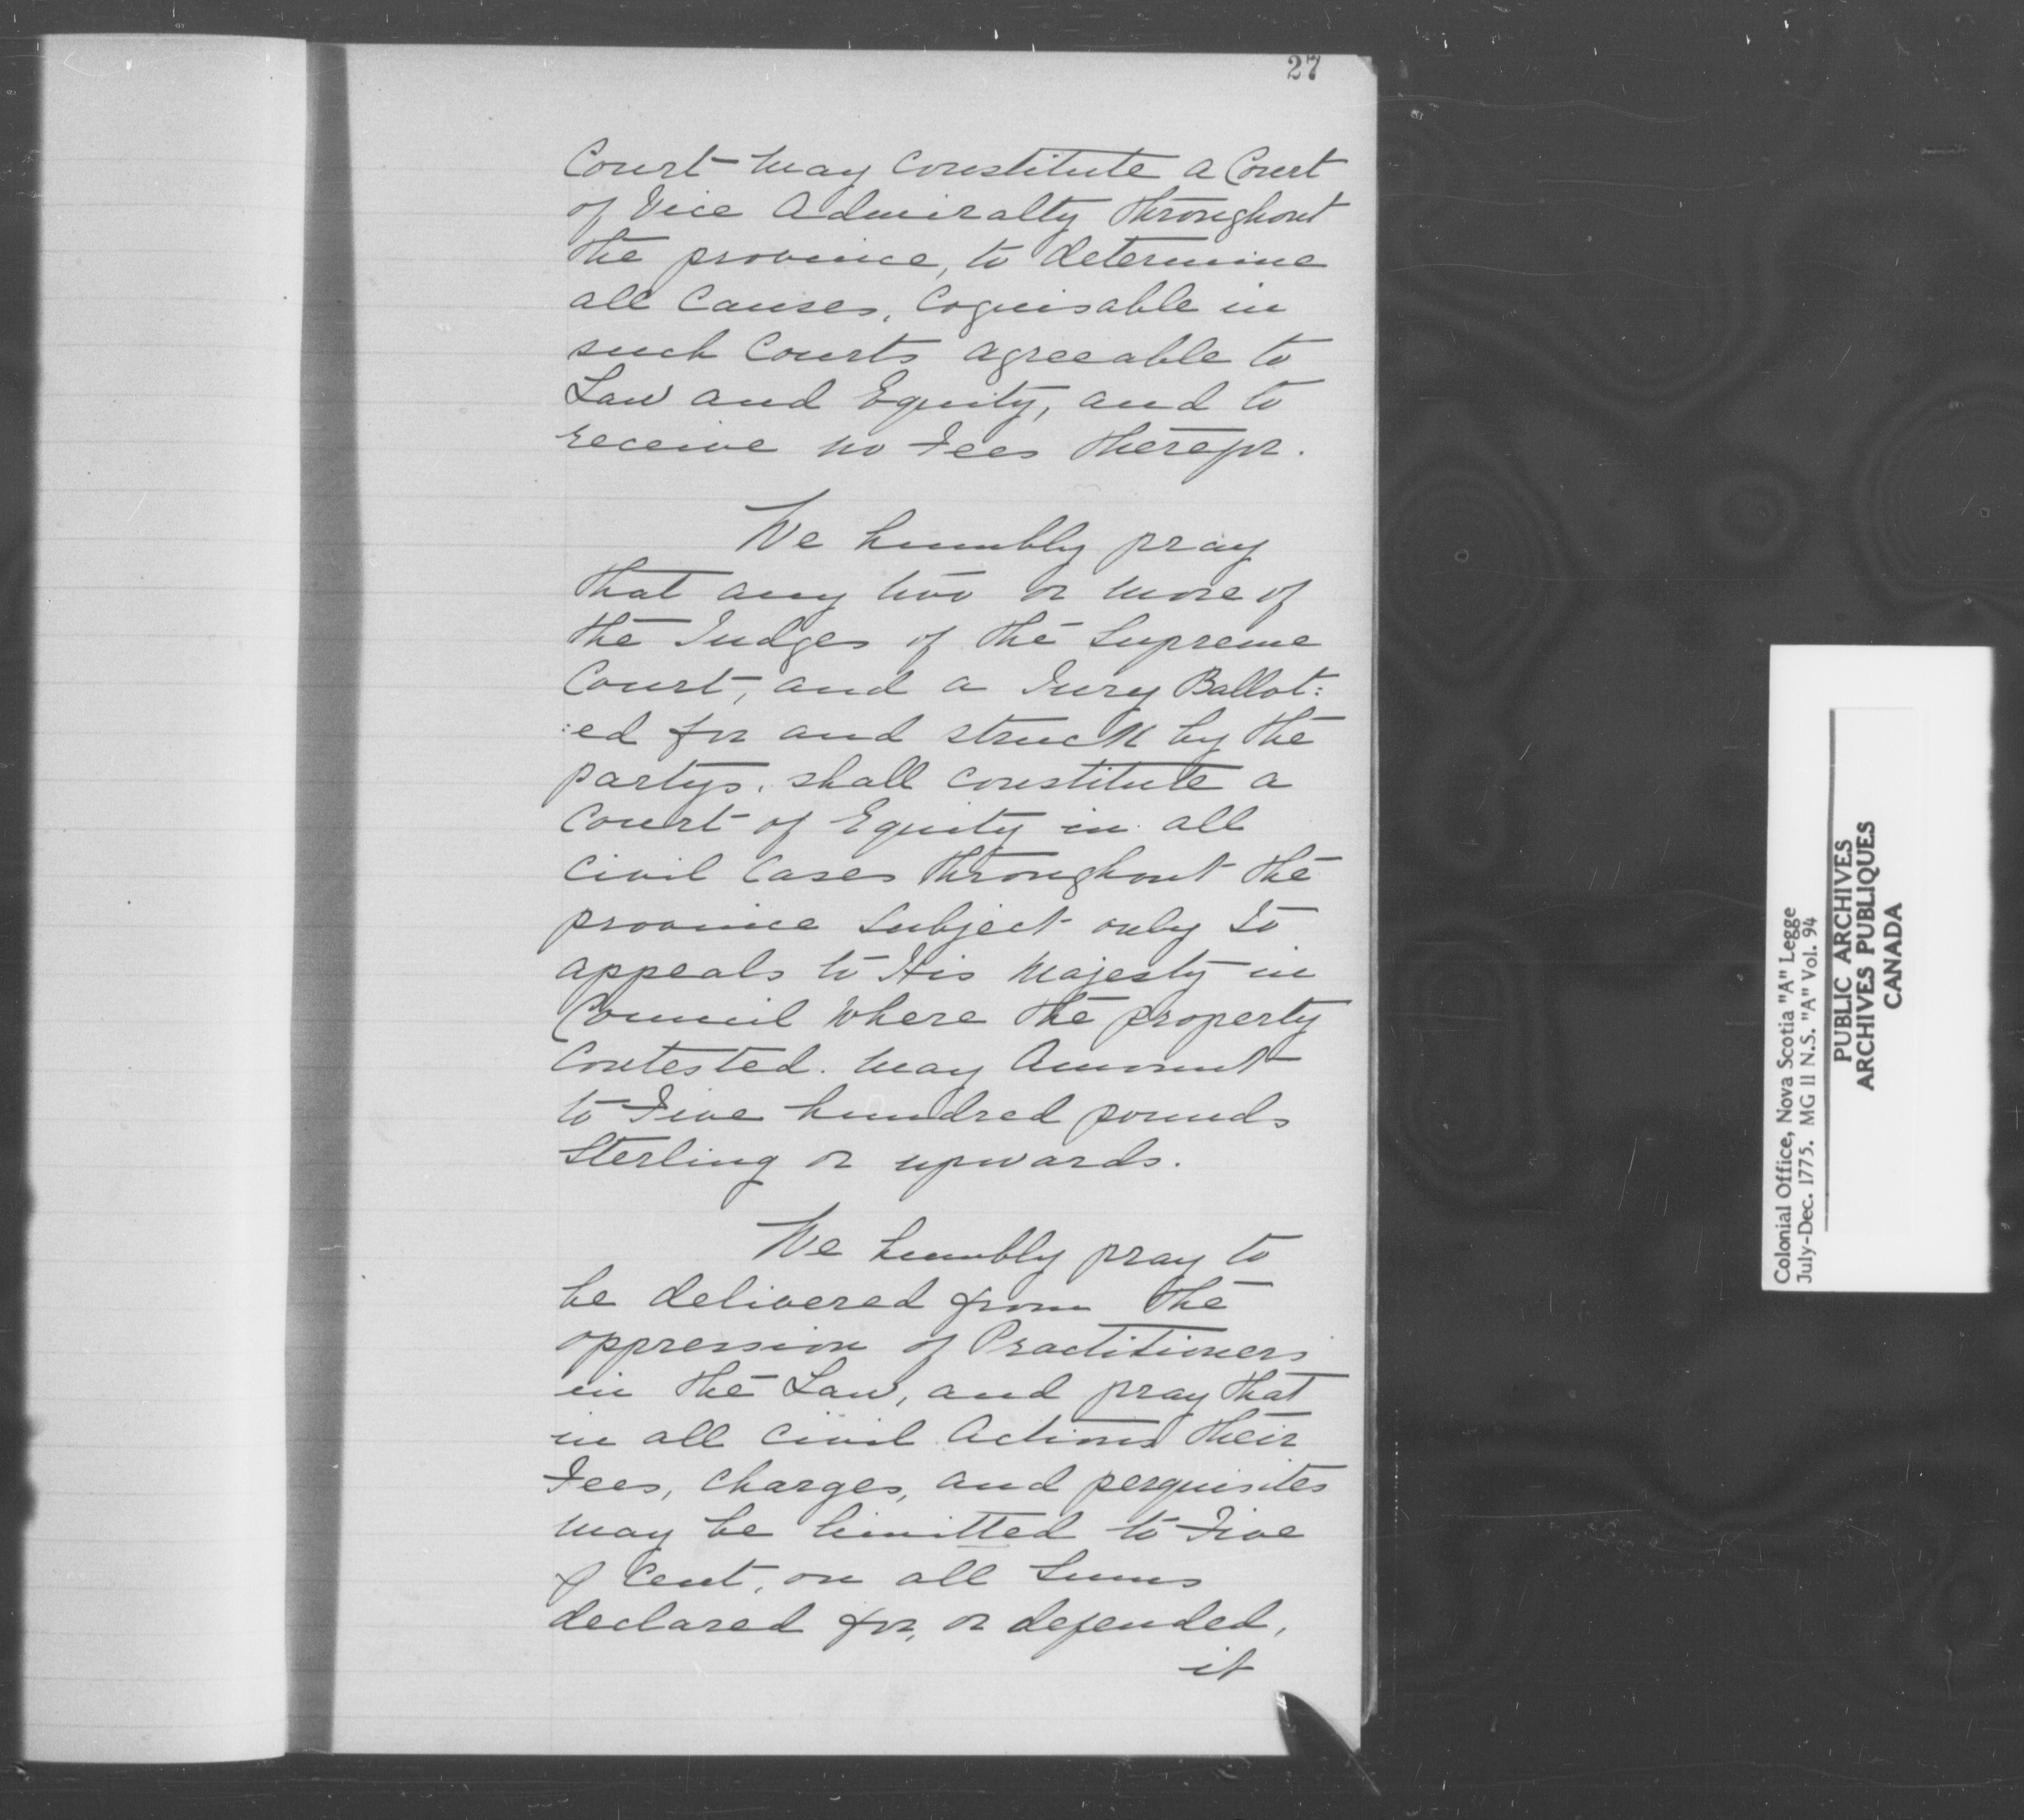 27
Court may constitute a Court
of Vice Admiralty throughout
the province, to determine
all Causes, Cognisable in
such Courts agreeable to
Law and Equity, and to
receive no Fees therefor.
We humbly pray
that any two or more of
the Judges of the Supreme
Court, and a Jury Ballot:
:ed for and struck by the
partys, shall constitute a
Court of Equity in all
Civil Cases throughout the
province Subject only to
appeals to His Majesty in
Council where the property
Contested. may Amount
to Five hundred pounds
Sterling or upwards.
We humbly pray to
be delivered from the
oppression of Practitioners
in the Law, and pray that
in all Civil Actions their
Fees, Charges, and perquisites
may be limitted to Five
⅌ Cent, on all Sums
declared for, or defended,
it
Colonial Office, Nova Scotia "A" Legge
July-Dec. 1775. MG II N.S. "A" Vol. 94
PUBLIC ARCHIVES
ARCHIVES PUBLIQUES
CANADA